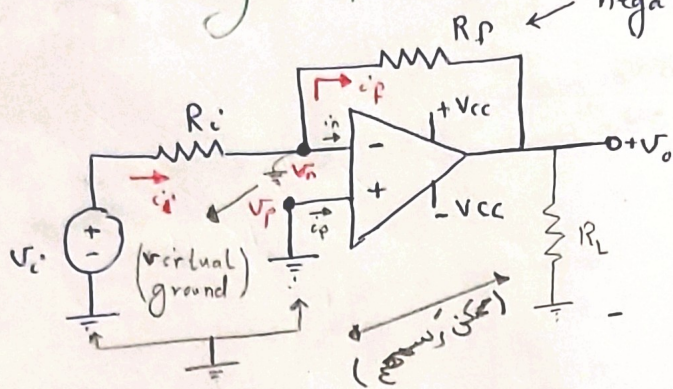 nega
Rf
if
+Vcc
Ri
in
-
+vo
vn
ii
vp
+
ip
-Vcc
vi
+
-
(virtual
ground)
RL